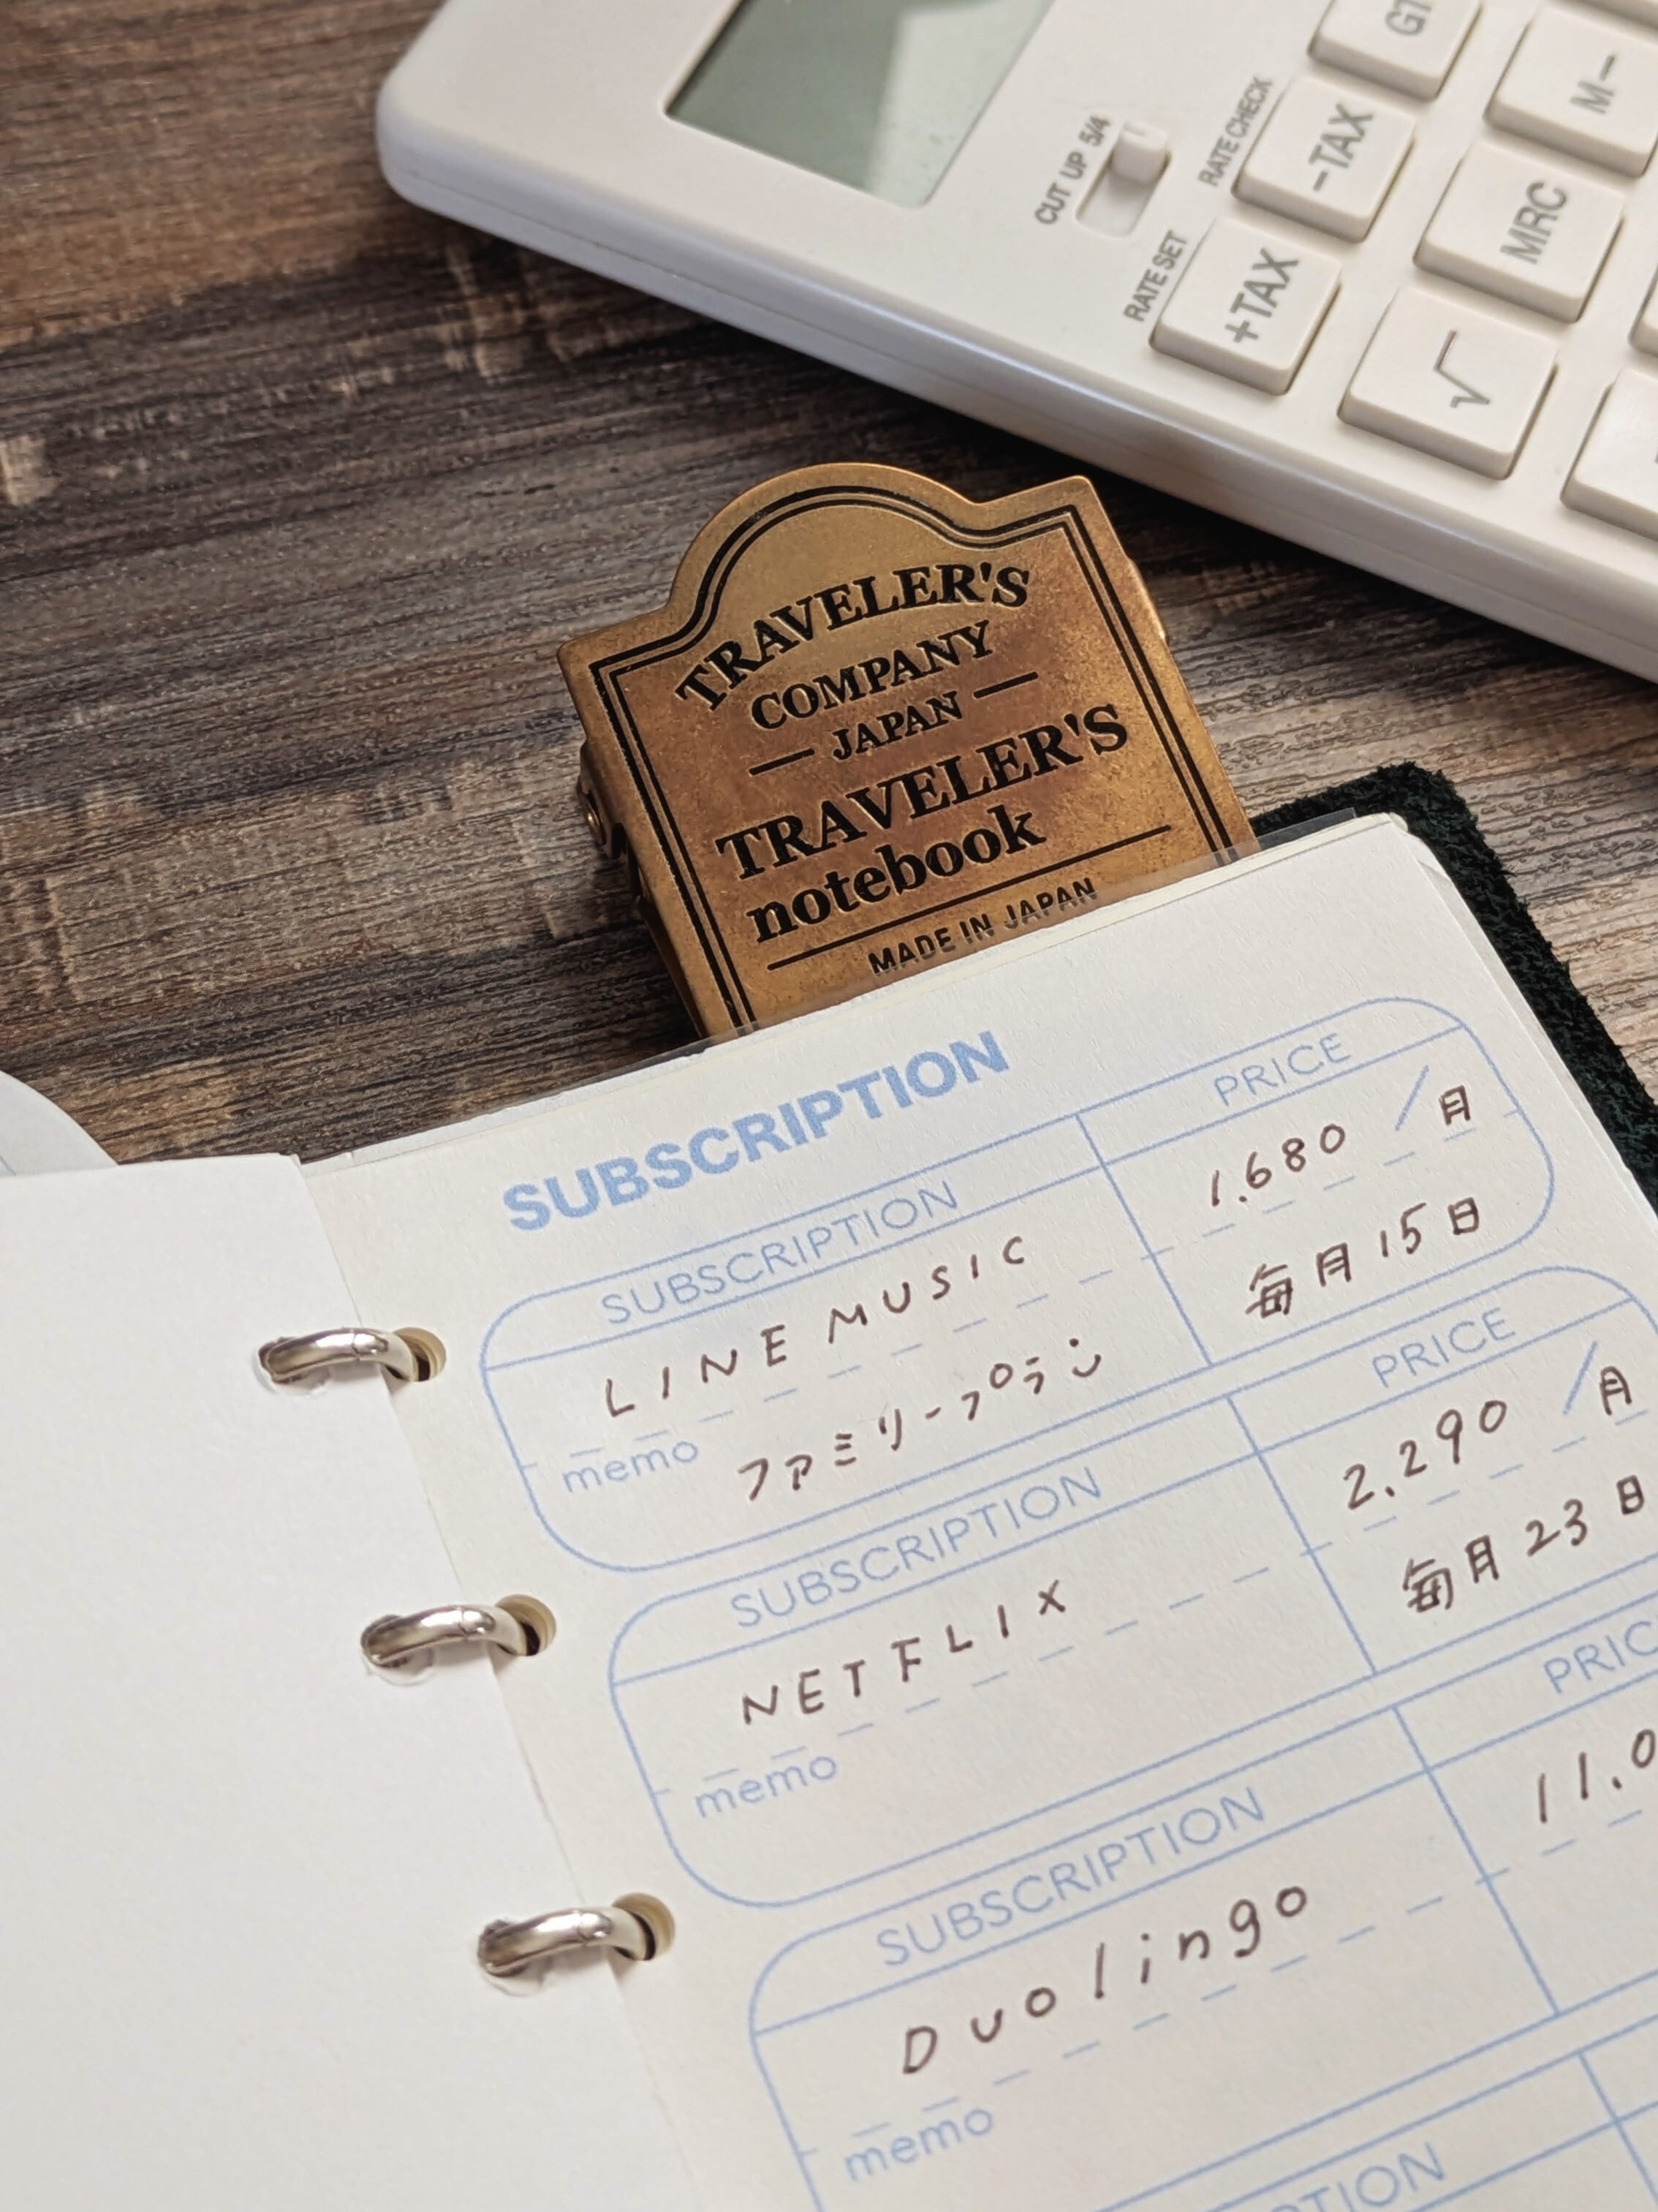 GT
M-
CUT UP 5/4
RATE CHECK
-TAX
MRC
RATE SET
+TAX
√
TRAVELER'S
COMPANY
JAPAN
TRAVELER'S
notebook
MADE IN JAPAN
SUBSCRIPTION
SUBSCRIPTION PRICE
LINE MUSIC 1.680 /月
memo ファミリープラン 毎月15日
SUBSCRIPTION PRICE
NETFLIX 2.290 /月
memo 毎月23日
SUBSCRIPTION PRIC
Duolingo 11.0
memo